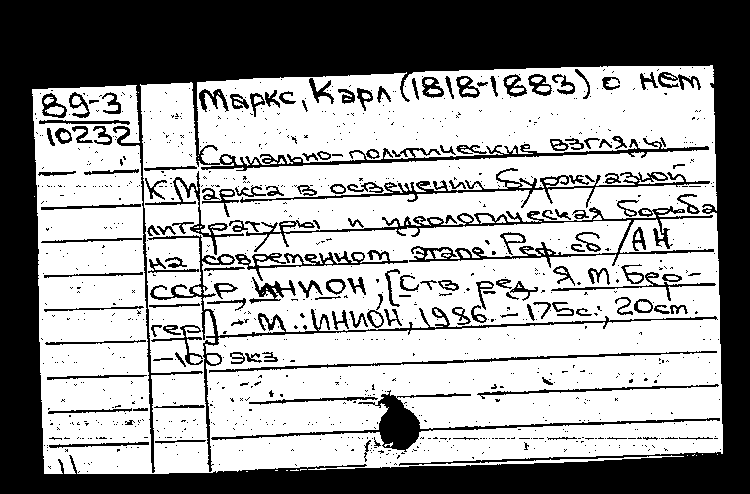 89-3
10232
Маркс, Карл (1818-1883) о нем.
Социально-политические взгляды
К. Маркса в освещении буржуазной
литературы и идеологическая борьба
на современном этапе: Реф. сб. / АН
СССР, ИНИОН; [Отв. ред. Я.М. Бер-
гер]. - М.: ИНИОН, 1986. - 175 с.; 20 см.
- 100 экз.